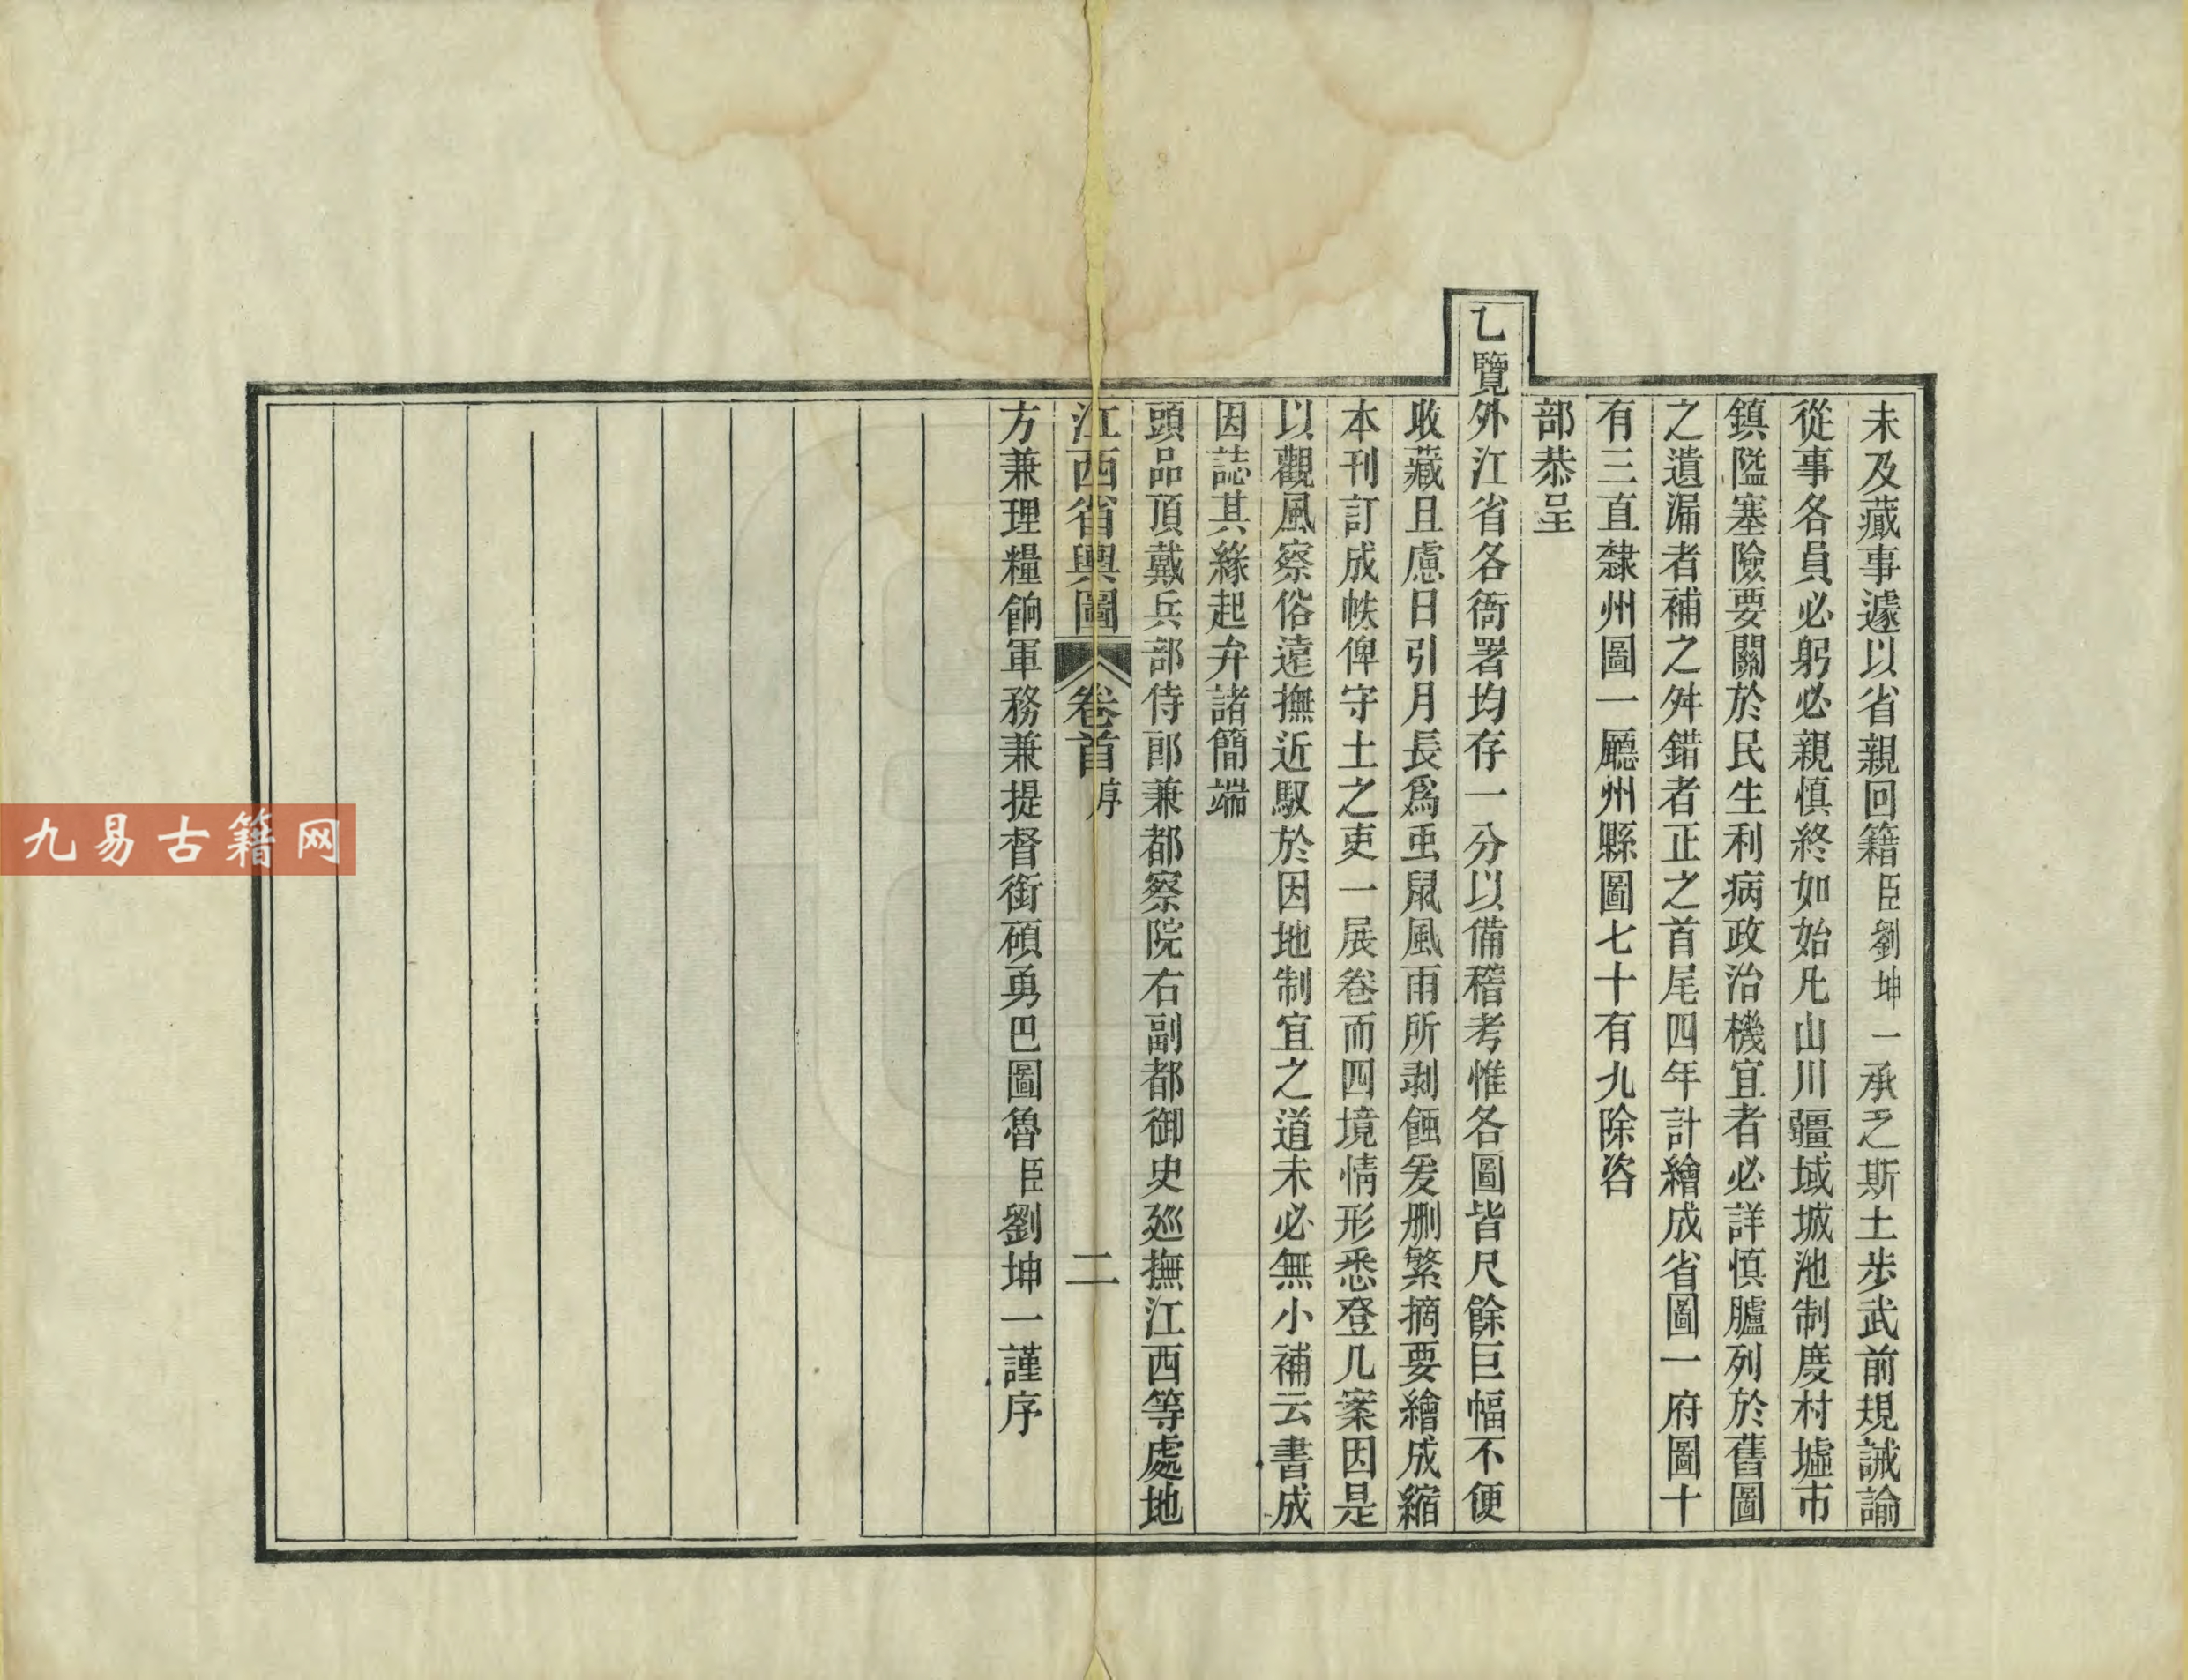 未及蕆事遽以省親回籍臣劉坤一承乏斯土步武前規誡諭
從事各員必躬必親慎終如始凡山川疆域城池制度村墟市
鎮隘塞險要關於民生利病政治機宜者必詳慎臚列於舊圖
之遺漏者補之舛錯者正之首尾四年計繪成省圖一府圖十
有三直隸州圖一廳州縣圖七十有九除咨
部恭呈
乙覽外江省各衙署均存一分以備稽考惟各圖皆尺餘巨幅不便
收藏且慮日引月長爲䖝鼠風雨所剥蝕爰刪繁摘要繪成縮
本刊訂成帙俾守土之吏一展卷而四境情形悉登几案因是
以觀風察俗遠撫近馭於因地制宜之道未必無小補云書成
因誌其緣起弁諸簡端
頭品頂戴兵部侍郎兼都察院右副都御史廵撫江西等處地
江西省輿圖 卷首 序 二
方兼理糧餉軍務兼提督銜碩勇巴圖魯臣劉坤一謹序
九易古籍网